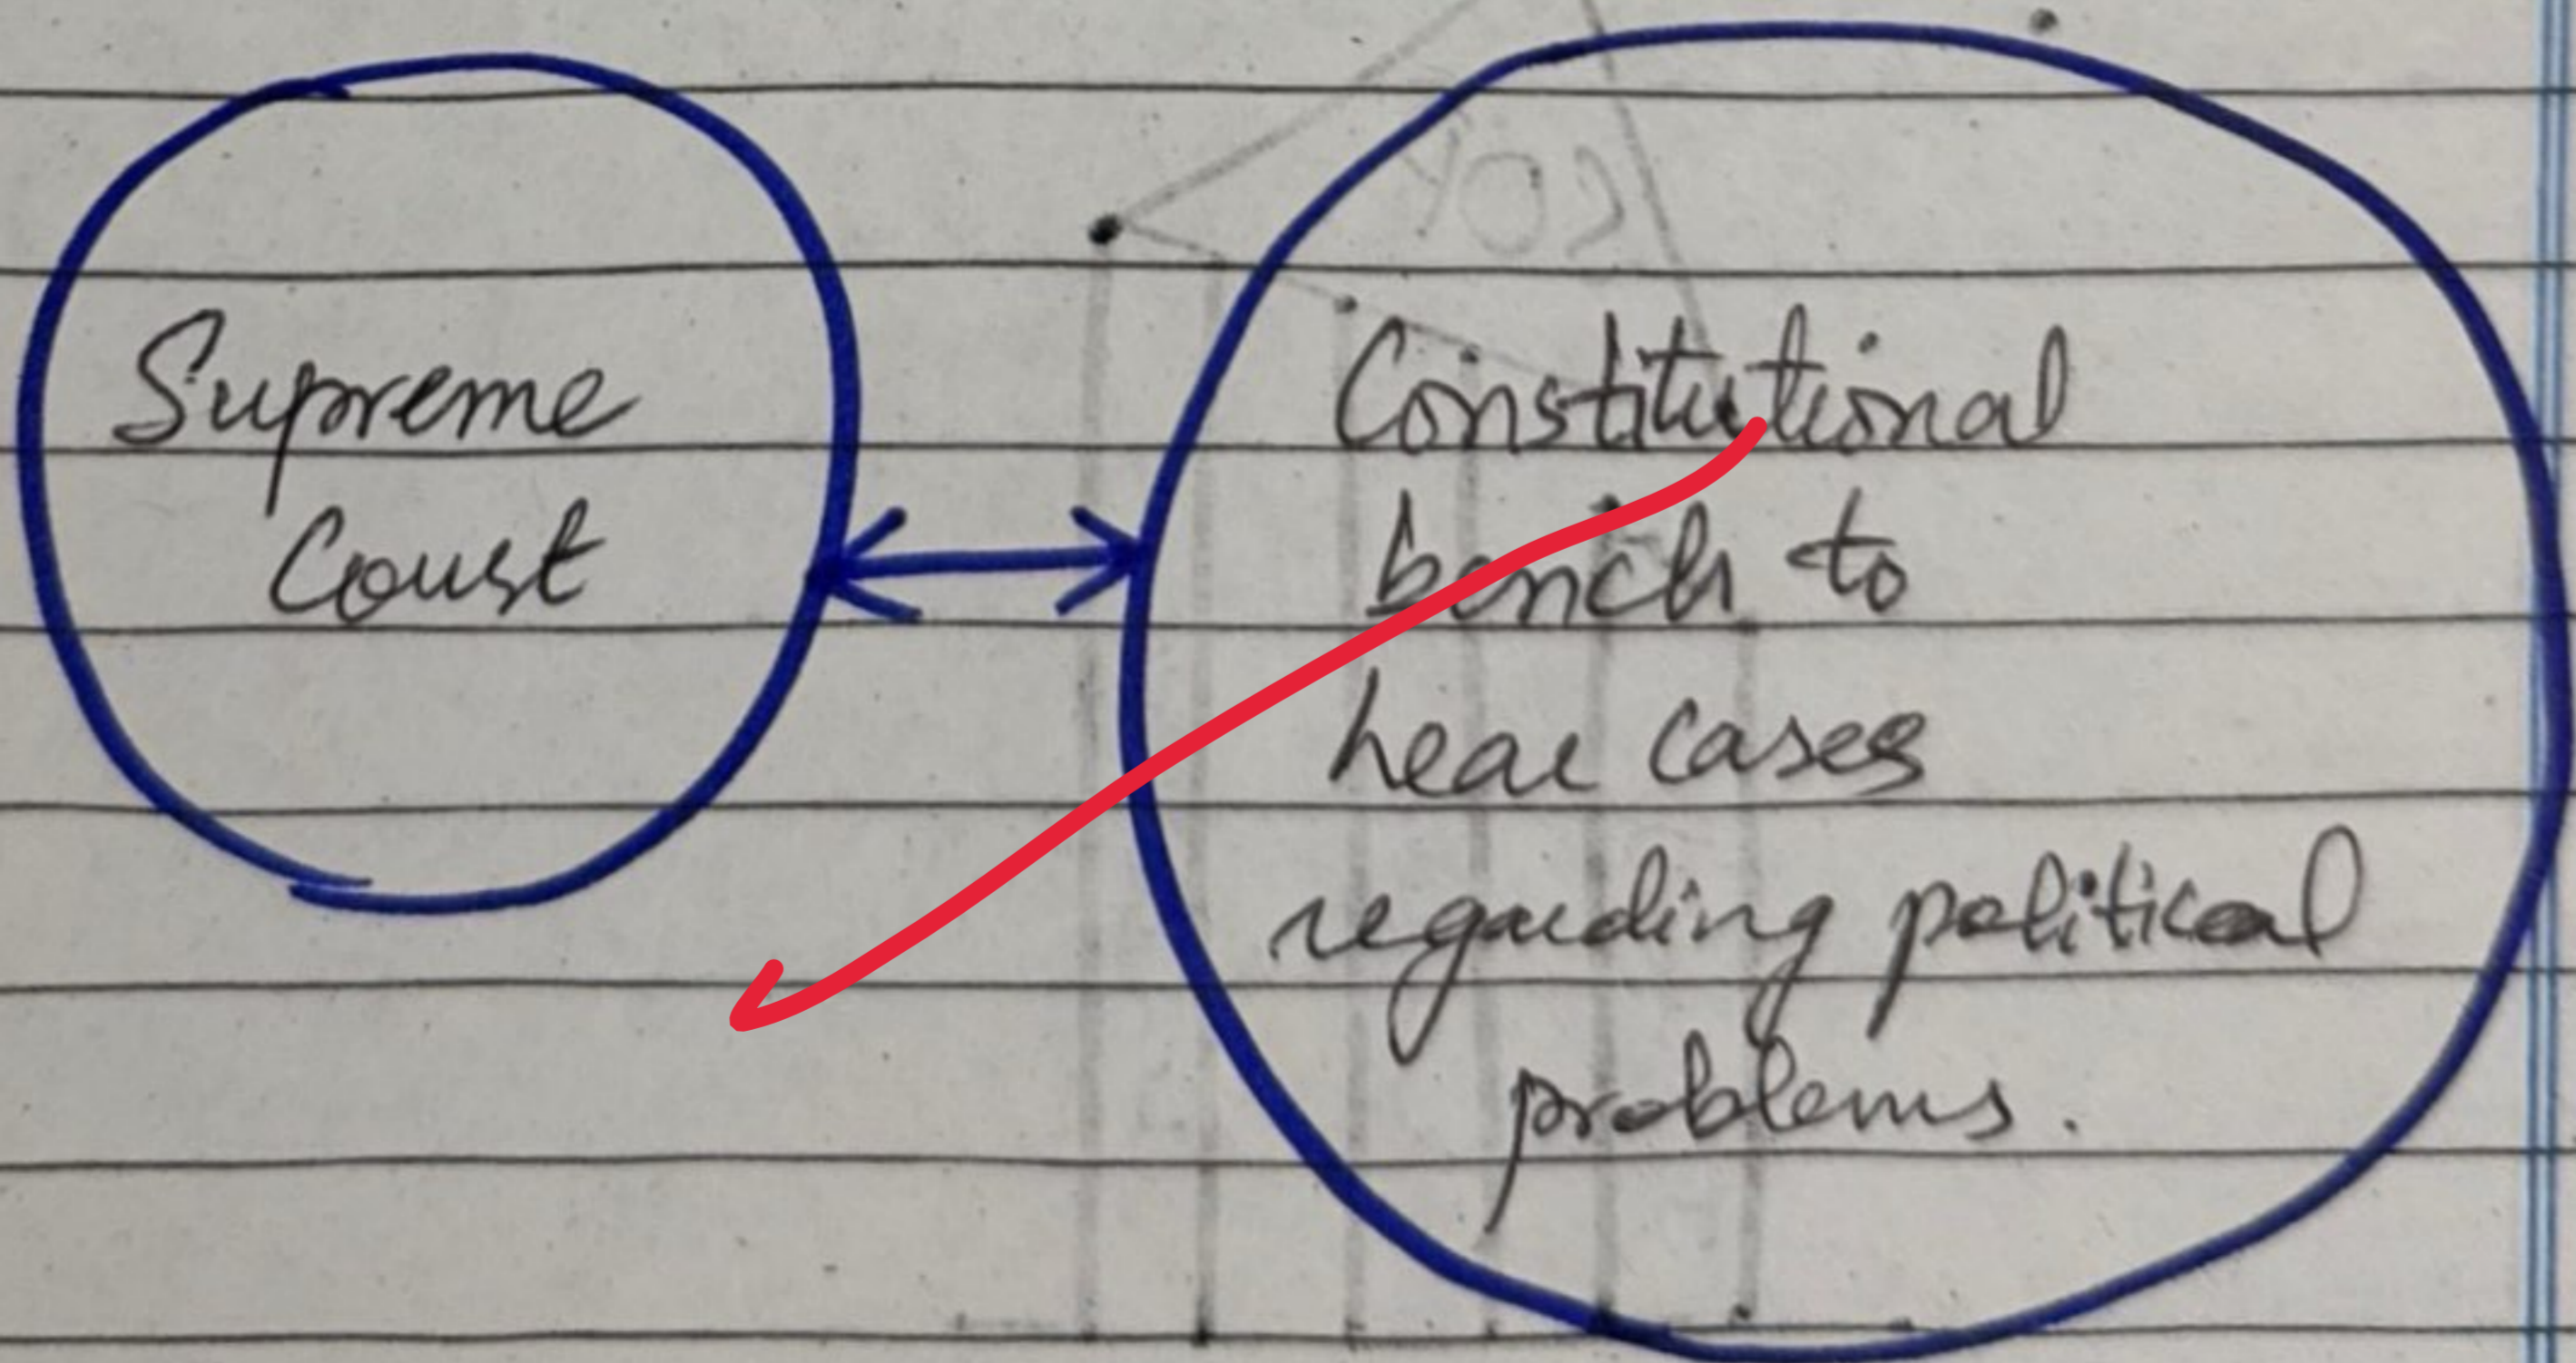 Supreme
Court
Constitutional
bench to
hear cases
regarding political
problems.